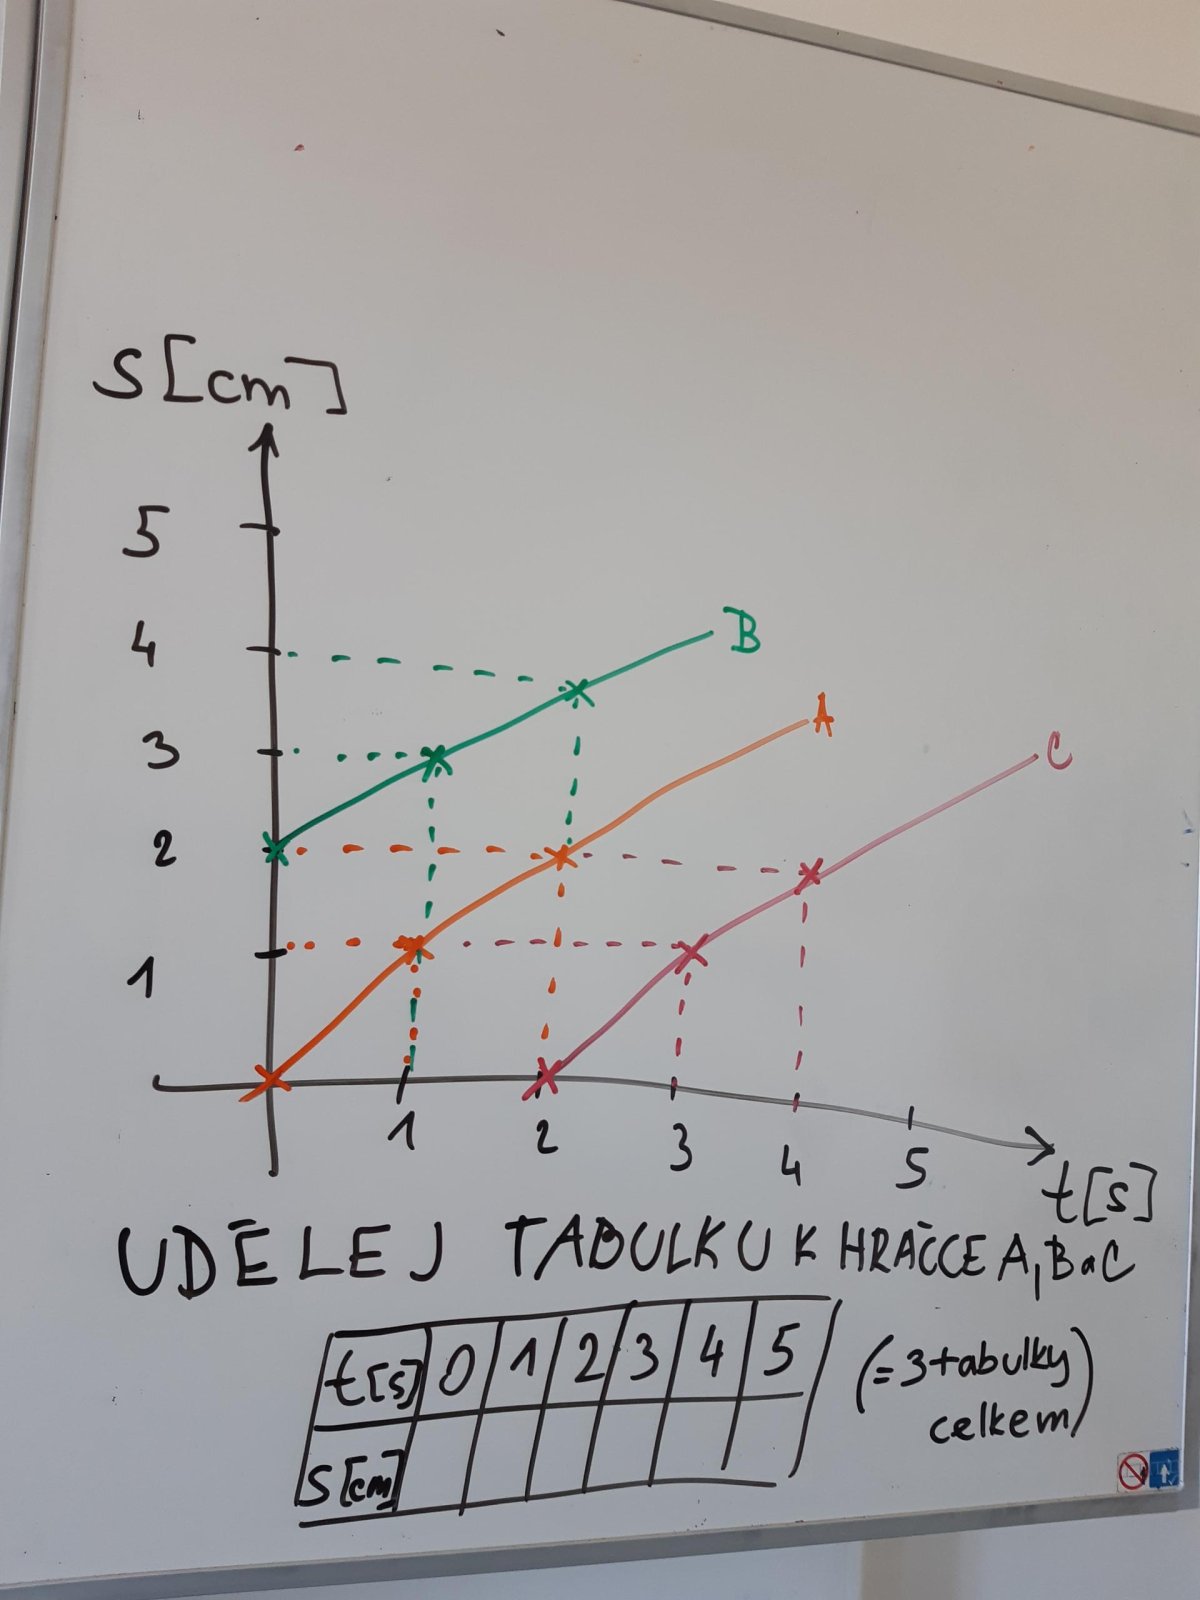 s[cm]
5
4
B
A
3
C
2
1
1
2
3
4
5
t[s]
UDĚLEJ TABULKU K HRAČCE A, B a C
t[s] 0 1 2 3 4 5
s[cm]
(= 3 tabulky
celkem)